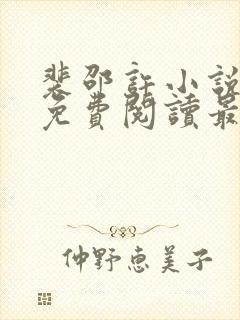 裴邵許小說
免費閱讀最
仲野惠美子